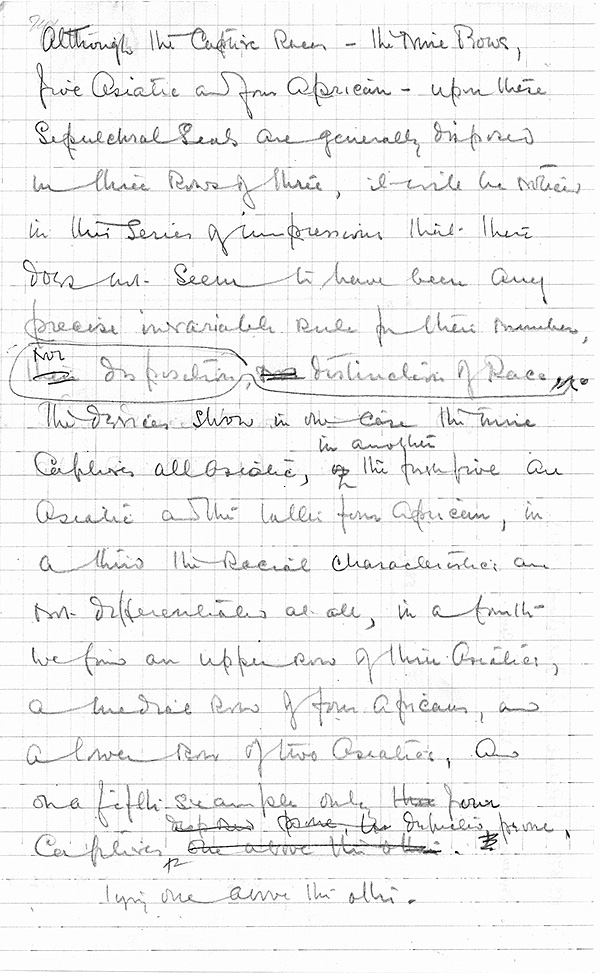 Although the Captive Races – the Nine Bows,
five Asiatic and four African – upon these
Sepulchral Seals are generally disposed
in three Rows of three, it will be noticed
in this Series of impressions that there
does not seem to have been any
precise invariable rule for their numbers,
nor
disposition, distinction of Race,
The devices show in one case the nine
in another
Captives all Asiatic, the first five are
Asiatic and the latter four African, in
a third the Racial characteristics are
not differentiated at all, in a fourth
we find an upper row of three Asiatics,
a medial Row of four Africans, and
a lower Row of two Asiatics, and
on a fifth example only four
depicted prone,
Captives one above the other.
lying one above the other.